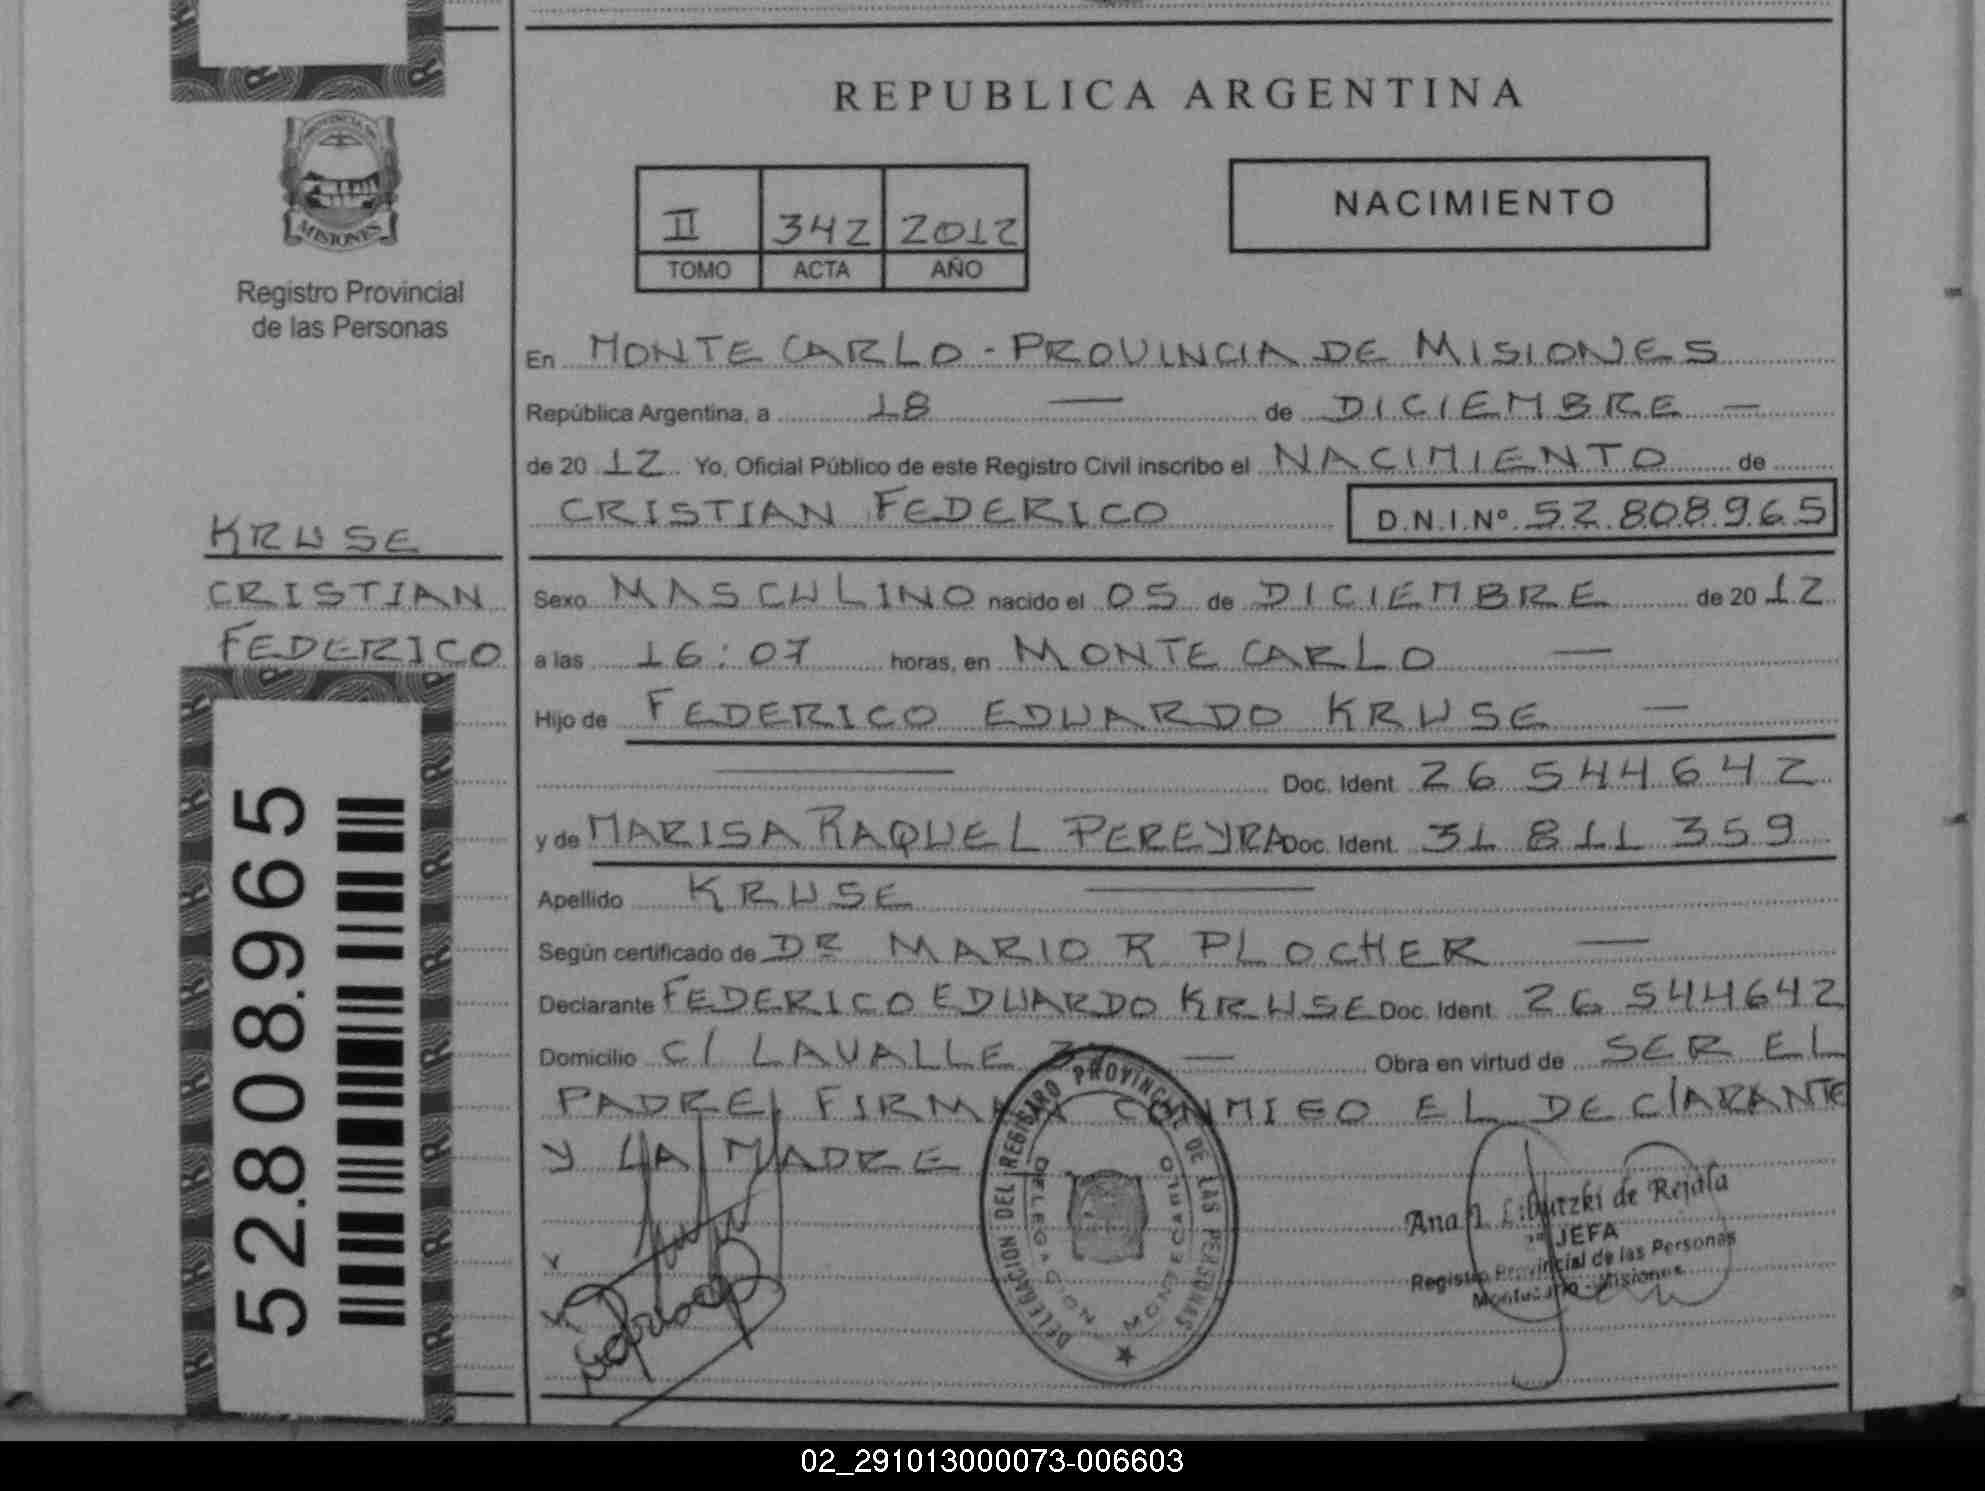 REPUBLICA ARGENTINA
PROVINCIA DE
MISIONES
Registro Provincial
de las Personas
II 342 2012
TOMO ACTA AÑO
NACIMIENTO
En MONTE CARLO - PROVINCIA DE MISIONES
República Argentina, a 18 — de DICIEMBRE —
de 20 12 Yo, Oficial Público de este Registro Civil inscribo el NACIMIENTO de
CRISTIAN FEDERICO D.N.I.Nº 52.808.965
KRUSE
CRISTIAN
FEDERICO
52.808.965
Sexo MASCULINO nacido el 05 de DICIEMBRE de 20 12
a las 16:07 horas, en MONTE CARLO —
Hijo de FEDERICO EDUARDO KRUSE —
— Doc. Ident. 26 544642
y de MARISA RAQUEL PEREYRA Doc. Ident. 31 811 359
Apellido KRUSE —
Según certificado de DR MARIO R PLOCHER —
Declarante FEDERICO EDUARDO KRUSE Doc. Ident. 26 544642
Domicilio C/ LAVALLE — Obra en virtud de SER EL
PADRE, FIRMA CONMIGO EL DEClARANTE
Y LA MADRE
DELEGACION DEL REGISTRO PROVINCIAL DE LAS PERSONAS
DELEGACION MONTECARLO
Ana de Rejala
JEFA
Registro Provincial de las Personas
Misiones
02_291013000073-006603